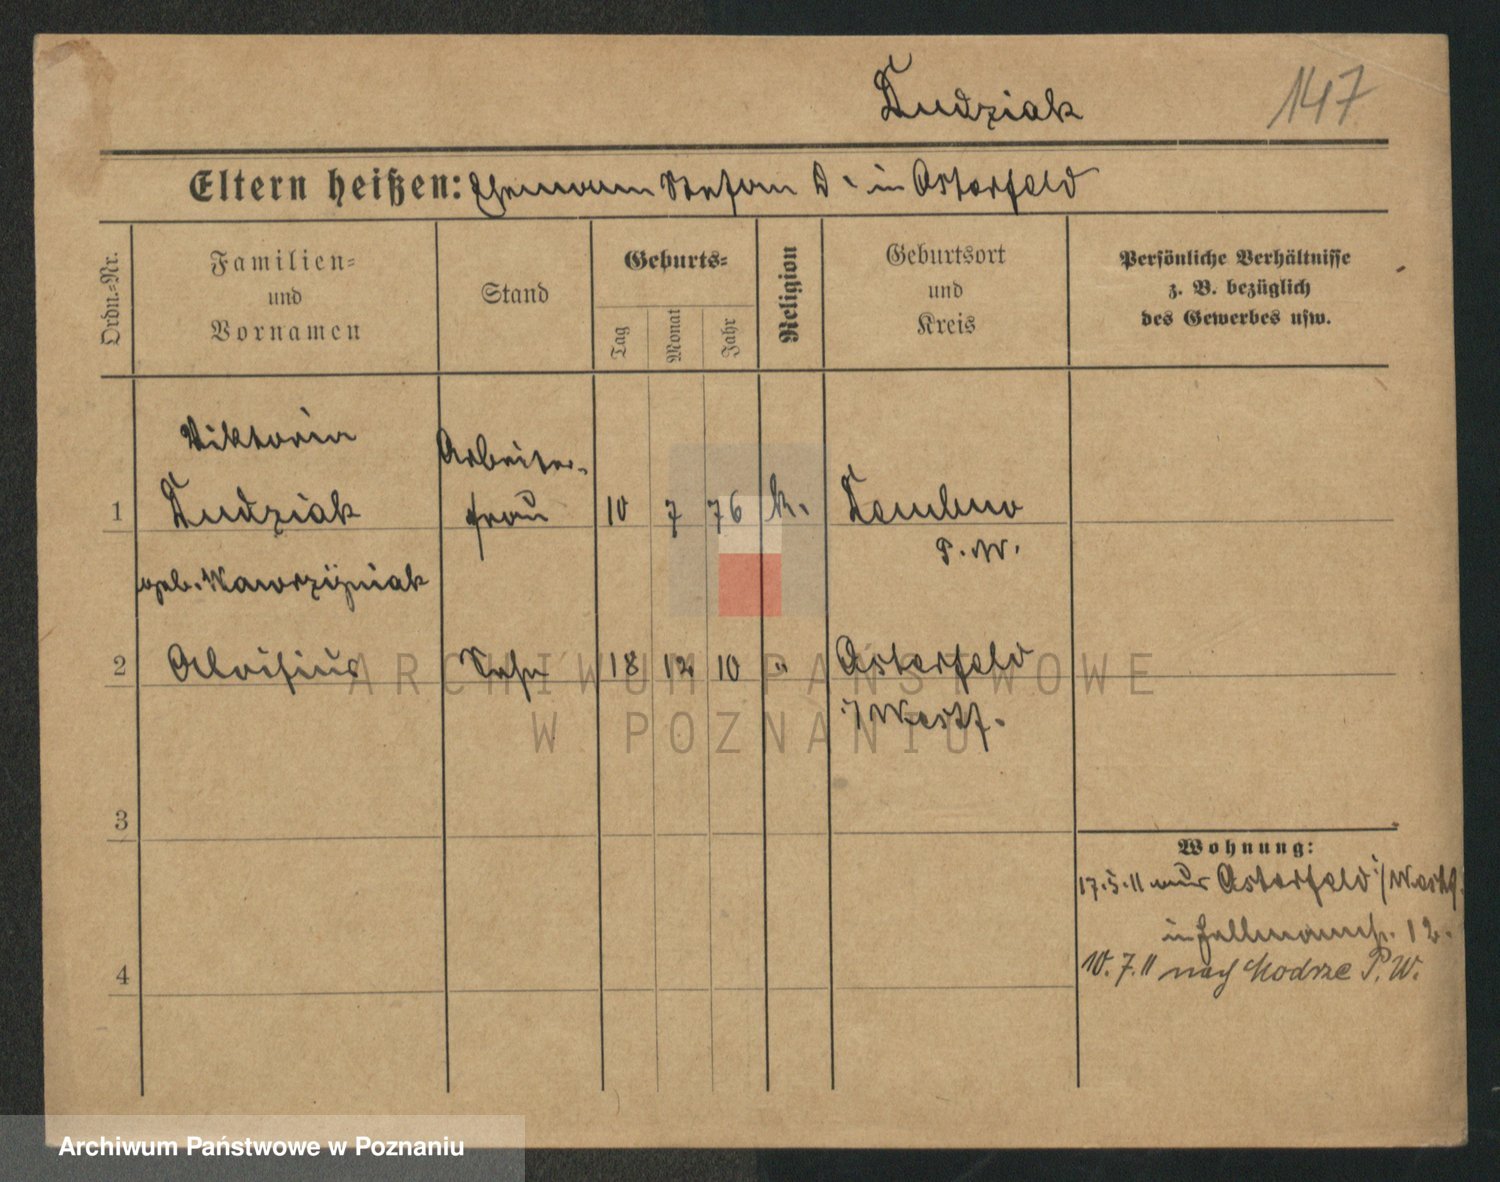 Dudziak
147
Eltern heißen: Ehemann Stefan D. in Osterfeld
Ordn.-Nr.
Familien-
und
Vornamen
Stand
Geburts-
Tag
Monat
Jahr
Religion
Geburtsort
und
Kreis
Persönliche Verhältnisse
z. B. bezüglich
des Gewerbes usw.
Viktoria
Arbeiter-
1 Dudziak frau 10 7 76 k. Dembno
P. W.
geb. Wawrzÿniak
2 Aloisius Sohn 18 12 10 " Osterfeld
i/Westf.
3
Wohnung:
17.5.11 aus Osterfeld i/Westf.
12.
4
10.7.11 nach Modrze P. W.
ARCHIWUM PAŃSTWOWE
W POZNANIU
Archiwum Państwowe w Poznaniu